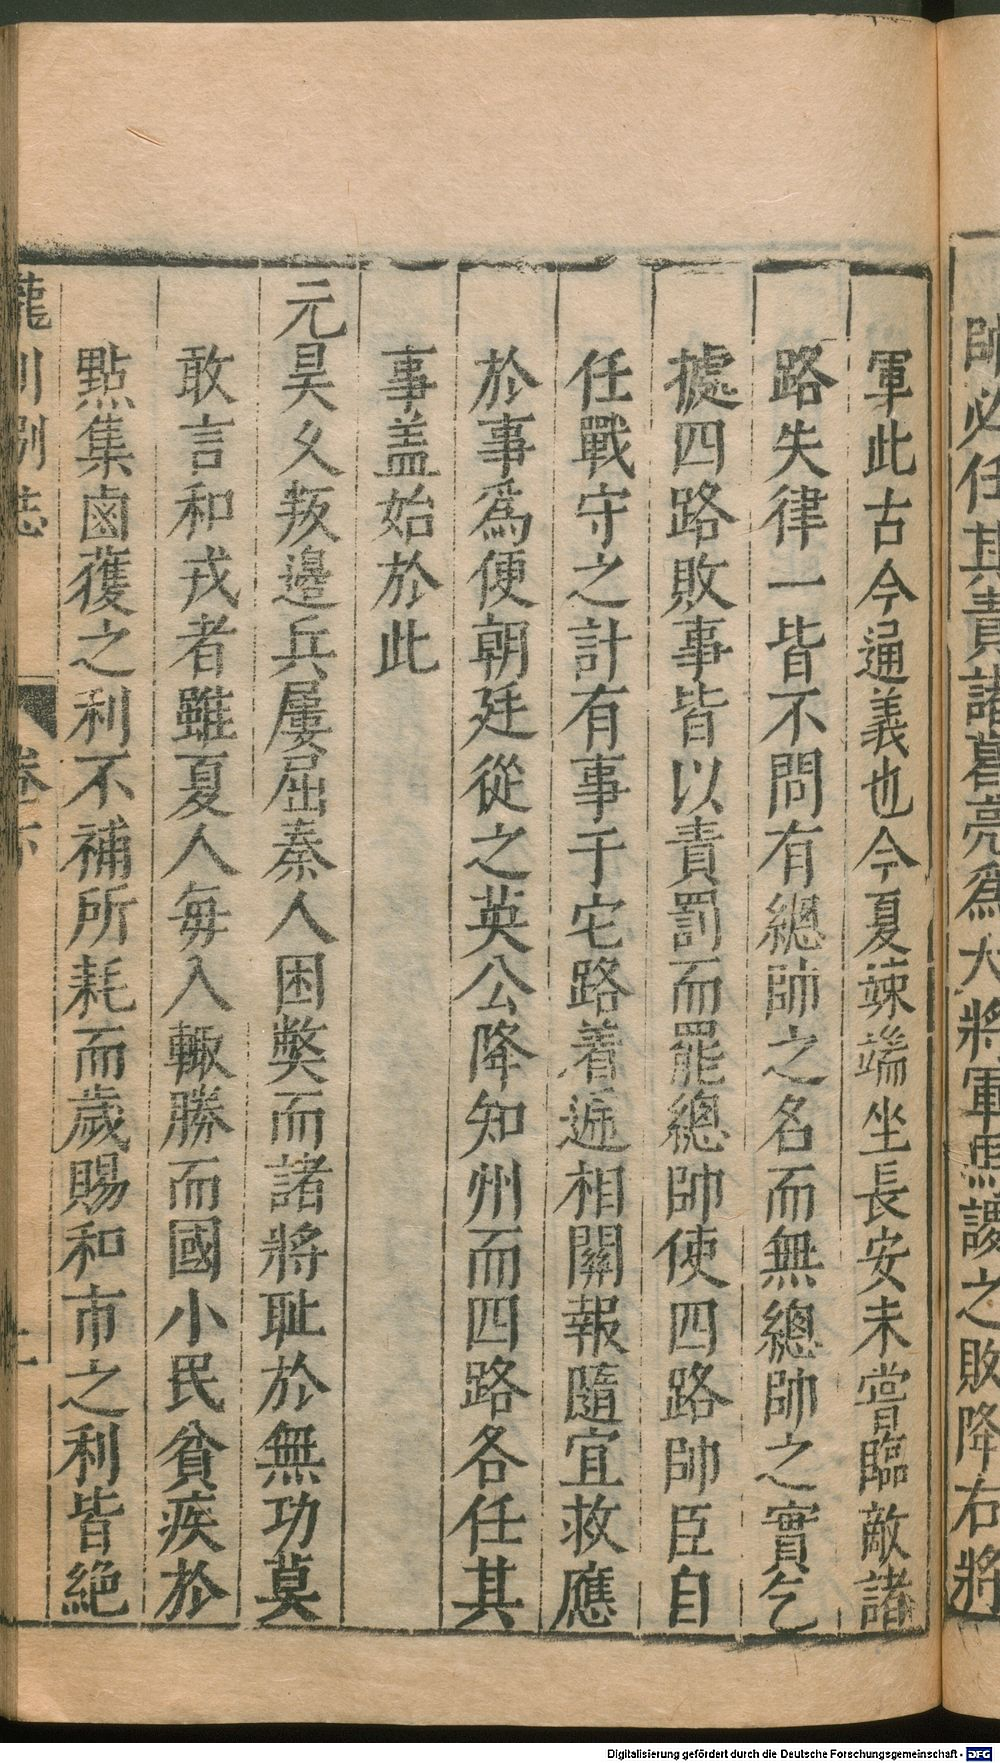 帥必任其責諸葛亮爲大將軍馬謖之敗降右將
軍此古今通義也今夏竦端坐長安未嘗臨敵諸
路失律一皆不問有總帥之名而無總帥之實乞
據四路敗事皆以責罰而罷總帥使四路帥臣自
任戰守之計有事于宅路着遞相關報隨宜救應
於事爲便朝廷從之英公降知州而四路各任其
事盖始於此
元昊久叛邊兵屢屈秦人困獘而諸將耻於無功莫
敢言和戎者雖夏人每入輙勝而國小民貧疾於
點集鹵獲之利不補所耗而歲賜和市之利皆絶
龍川別志 卷下
Digitalisierung gefördert durch die Deutsche Forschungsgemeinschaft - DFG